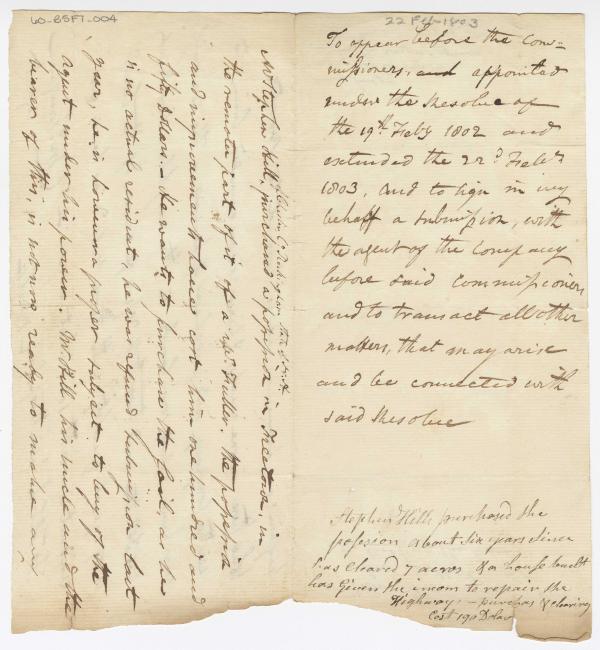 60-BSFT-004
22 Feb 1803
To appear before the Com=
missioners, and appointed
under the Resolve of
the 19th Feby 1802 and
extended the 22d Feby
1803, and to sign in my
behalf a submission, with
the agent of the Company
before said commissioners
and to transact all other
matters, that may arise
and be connected with
said Resolve
Stephen Hill purchased the
possesion about six years since
has cleared 7 acres & a house built
has Given the
to repair the
Highway, - purchas & clearing
Cost 190 Dolar
Stephen Hill, purchased a possession in Freetown, in
the remote part of it of a Mr. Fuller. the possession
and improvement have cost him one hundred and
fifty Dollars. - He wants to purchase the soil, as he
is no actual resident, he was refused submission last
year, he is however a proper subject to buy of the
agent under his power. Mr Hill his uncle and the
bearer of this, is not now ready to make any